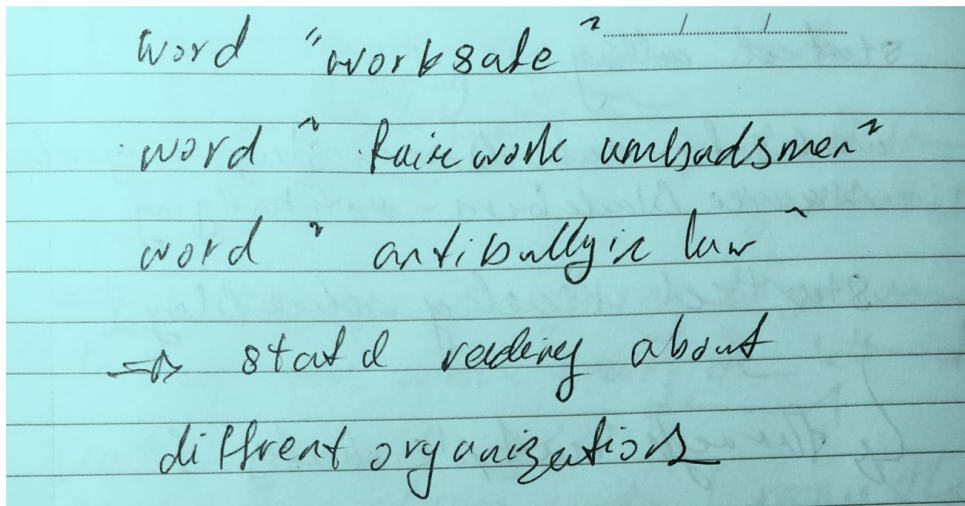 word "worksafe"
word "fairework umbudsmen"
word "antibullyic law"
⇒ statd reading about
diffrent organizations